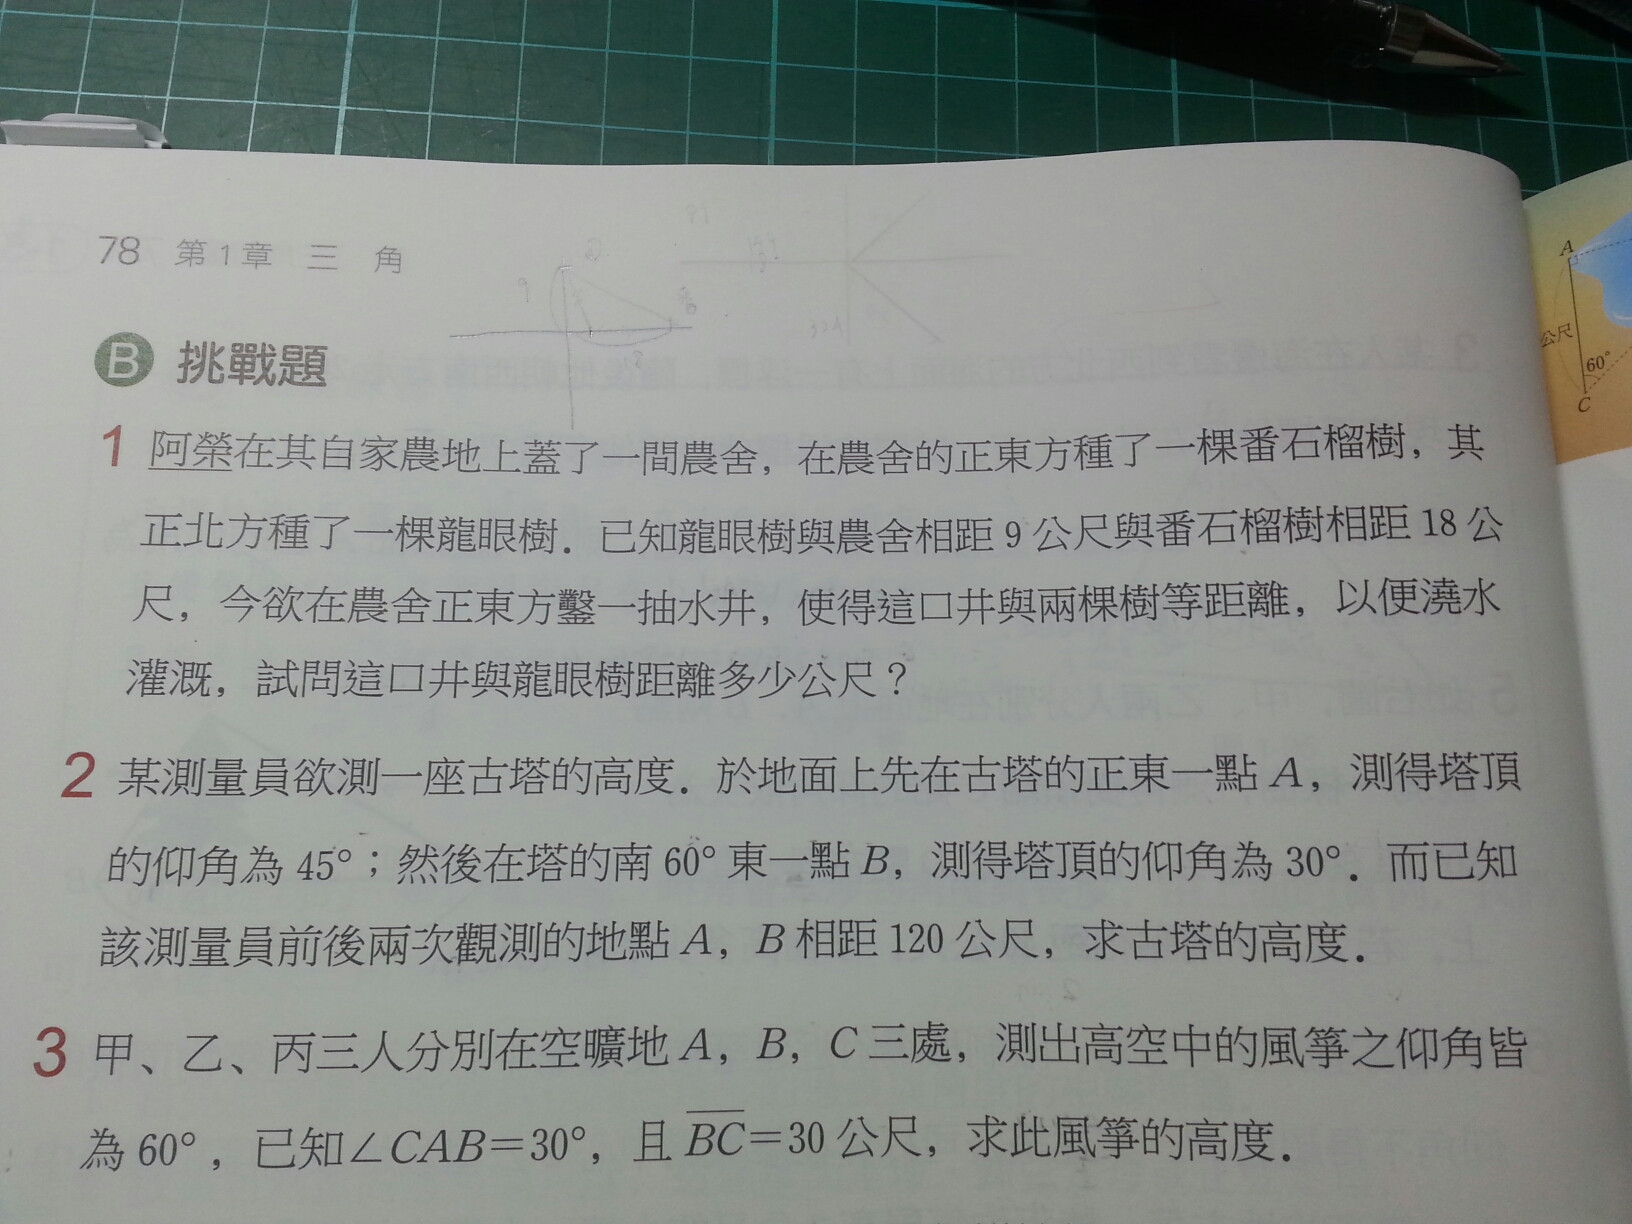 78 第1章 三 角
B 挑戰題
1 阿榮在其自家農地上蓋了一間農舍，在農舍的正東方種了一棵番石榴樹，其
正北方種了一棵龍眼樹．已知龍眼樹與農舍相距 9 公尺與番石榴樹相距 18 公
尺，今欲在農舍正東方鑿一抽水井，使得這口井與兩棵樹等距離，以便澆水
灌溉，試問這口井與龍眼樹距離多少公尺？
2 某測量員欲測一座古塔的高度．於地面上先在古塔的正東一點 A，測得塔頂
的仰角為 45°；然後在塔的南 60° 東一點 B，測得塔頂的仰角為 30°．而已知
該測量員前後兩次觀測的地點 A，B 相距 120 公尺，求古塔的高度．
3 甲、乙、丙三人分別在空曠地 A，B，C 三處，測出高空中的風箏之仰角皆
為 60°，已知∠CAB=30°，且 B̅C̅=30 公尺，求此風箏的高度．
A
公尺
60°
C